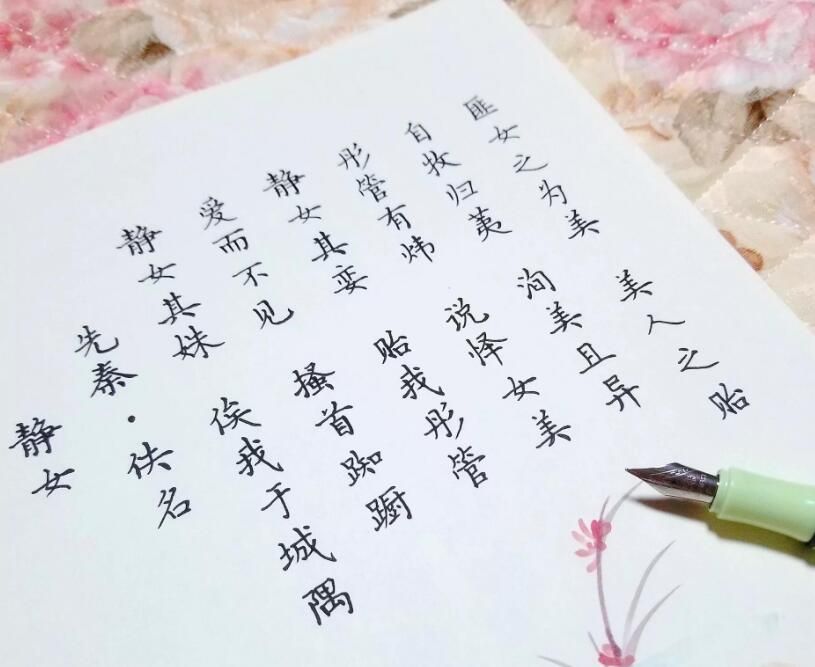 静女
先秦·佚名
静女其姝 俟我于城隅
爱而不见 搔首踟蹰
静女其娈 贻我彤管
彤管有炜 说怿女美
自牧归荑 洵美且异
匪女之为美 美人之贻